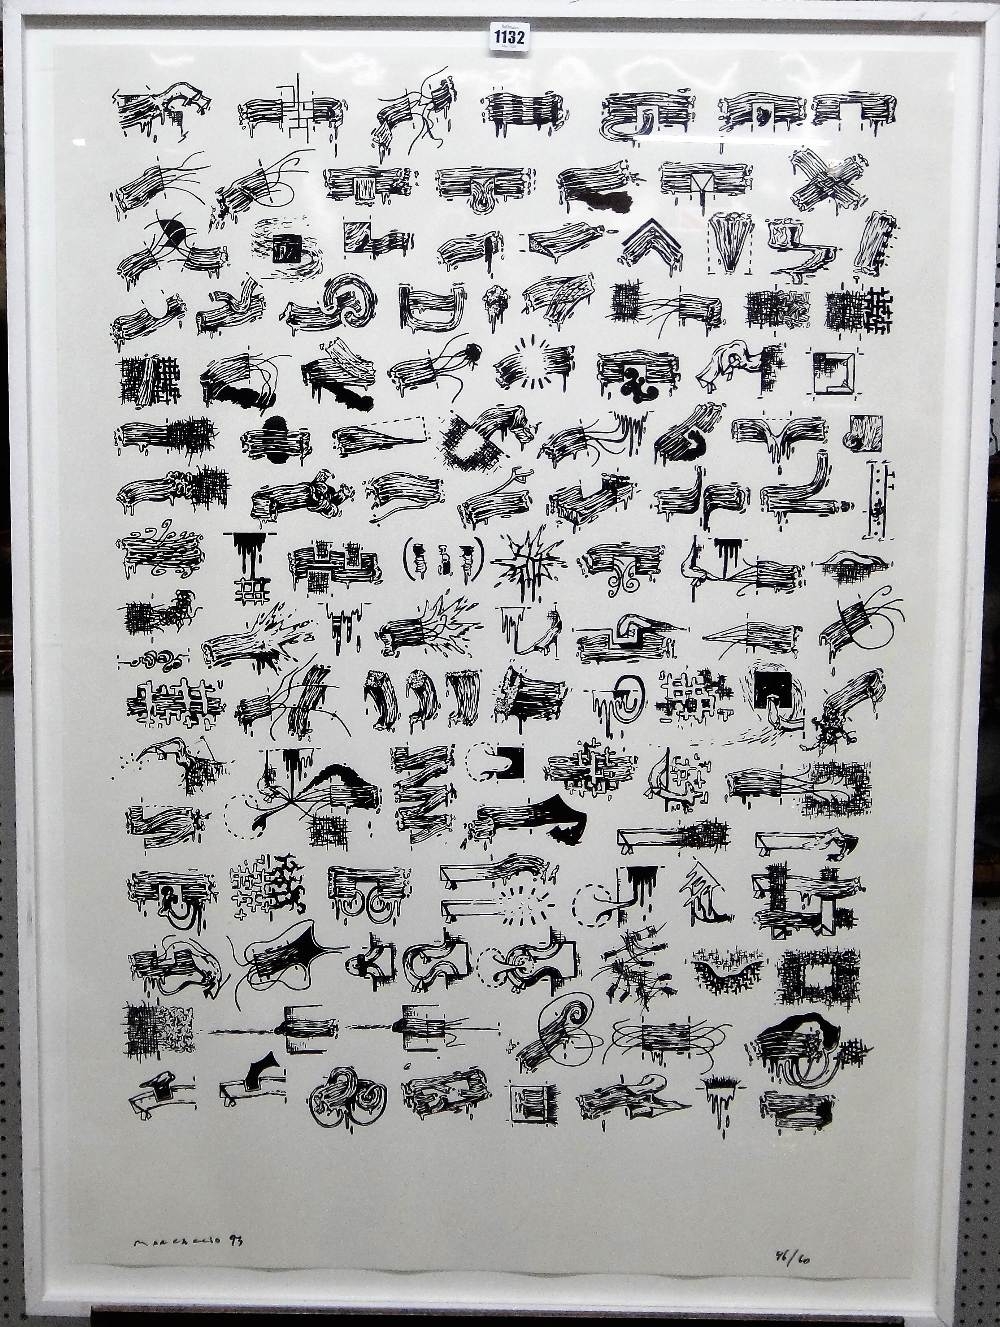 1132
Marcaccio 93
46/60